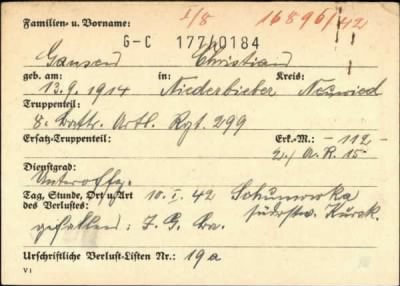 Familien- u. Vorname: I/8 16896/42
G-C 177/0184
Gansen Christian
geb. am: in: Kreis:
13.9.1914 Niederbieber Neuwied
Truppenteil:
8. Battr. Artl. Rgt. 299
Ersatz-Truppenteil: Erk.-M.: - 112 -
2./A.R. 15.-
Dienstgrad:
Unteroffz.
Tag, Stunde, Ort u. Art des Verlustes: 10. I. 42
südostw. Kursk.
gefallen: I. G.
Urschriftliche Verlust-Listen Nr.: 19a
V1